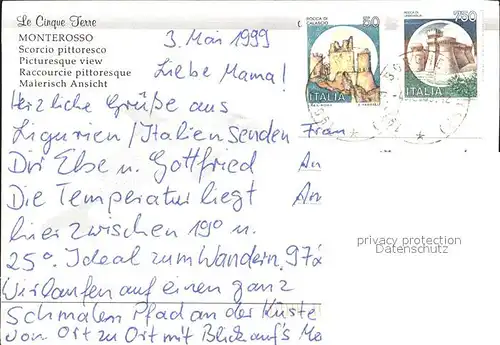 Le Cinque Terre
MONTEROSSO
Scorcio pittoresco
Picturesque view
Raccourcie pittoresque
Malerisch Ansicht
3. Mai 1999
Liebe Mama!
Herzliche Grüße aus
Ligurien/Italien senden
Dir Ebe u. Gottfried
Die Temperatur liegt
hier zwischen 19° u.
25°. Ideal zum Wandern.
Wir laufen auf einen ganz
Schmalen Pfad an der Küste
von Ort zu Ort mit Blick auf's
Frau
An
An
ROCCA DI
CALASCIO
50
ITALIA
ROCCA DI
750
ITALIA
privacy protection
Datenschutz